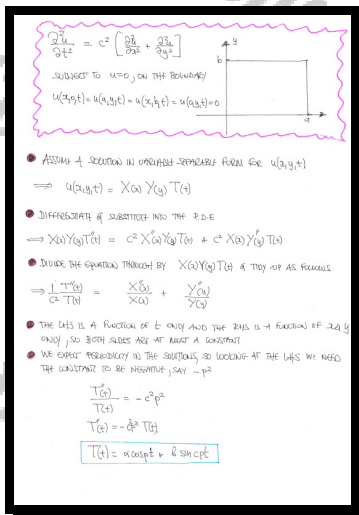 ∂²u/∂t² = c² [∂²u/∂x² + ∂²u/∂y²]
SUBJECT TO u=0, ON THE BOUNDARY
u(x,0,t) = u(0,y,t) = u(x,b,t) = u(a,y,t) = 0
y
b
x
a
ASSUME A SOLUTION IN VARIABLE SEPARABLE FORM FOR u(x,y,t)
⟹ u(x,y,t) = X(x) Y(y) T(t)
DIFFERENTIATE & SUBSTITUTE INTO THE P.D.E
⟹ X(x)Y(y)T''(t) = c² X''(x)Y(y)T(t) + c² X(x)Y''(y)T(t)
DIVIDE THE EQUATION THROUGH BY X(x)Y(y)T(t) & TIDY UP AS FOLLOWS
⟹ 1/c² T''(t)/T(t) = X''(x)/X(x) + Y''(y)/Y(y)
THE LHS IS A FUNCTION OF t ONLY AND THE RHS IS A FUNCTION OF x & y
ONLY, SO BOTH SIDES ARE AT MOST A CONSTANT
WE EXPECT PERIODICITY IN THE SOLUTIONS, SO LOOKING AT THE LHS WE NEED
THE CONSTANT TO BE NEGATIVE, SAY -p²
T''(t)/T(t) = -c²p²
T''(t) = -c²p² T(t)
T(t) = α cos pt + β sin cpt